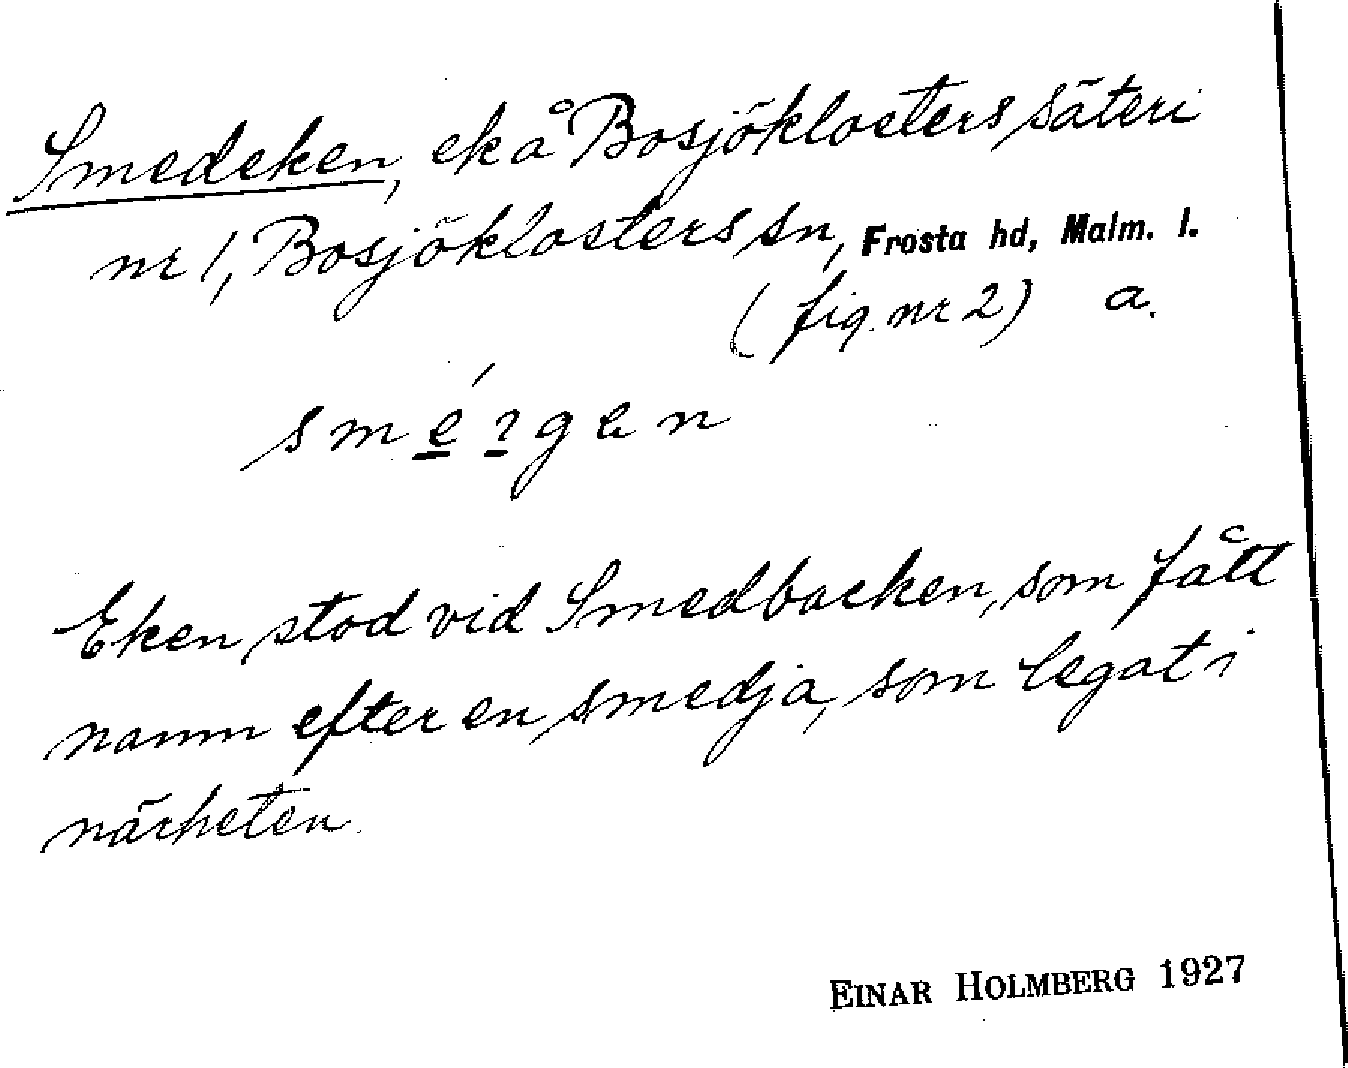 Smedeken, ek å Bosjöklosters säteri
nr 1, Bosjöklosters sn, Frosta hd, Malm. l.
(fig. nr 2) a.
Eken stod vid Smedbacken, som fått
namn efter en smedja, som legat i
närheten.
EINAR HOLMBERG 1927